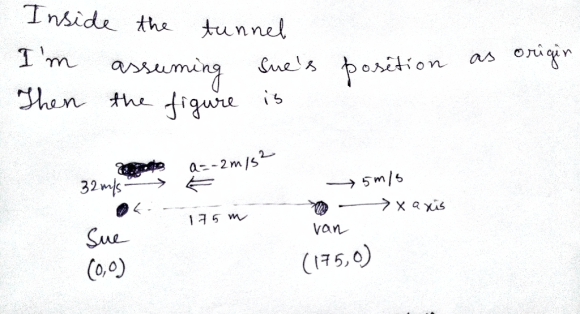 Inside the tunnel
I'm assuming Sue's position as origin
Then the figure is
a=-2m/s²
32m/s
5m/s
x axis
175 m
Sue
van
(0,0)
(175,0)